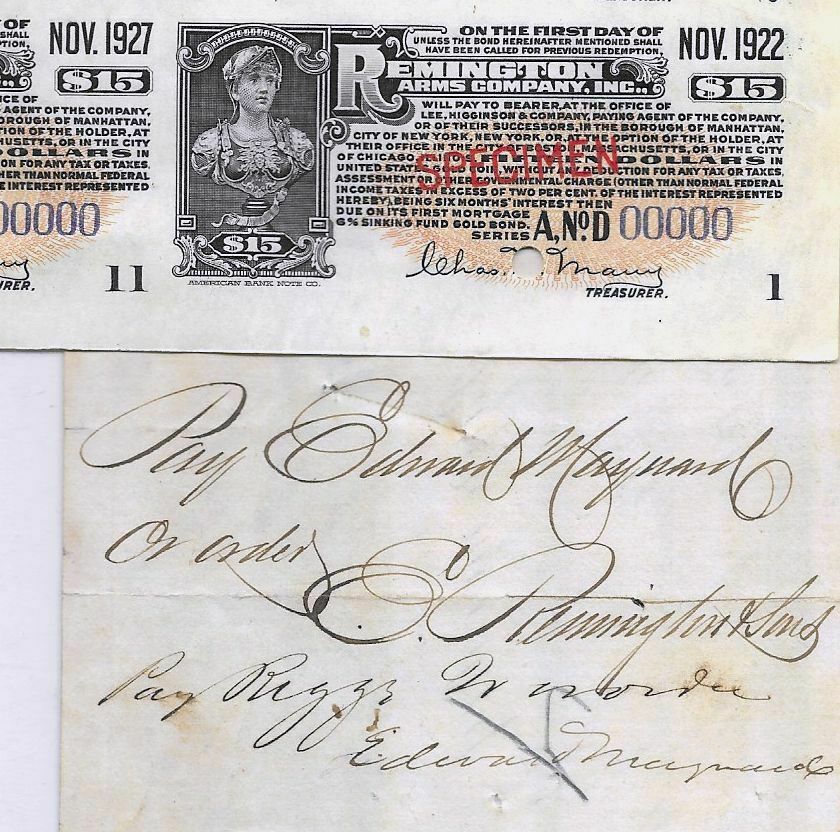 Y OF
SHALL
PTION,
NOV. 1927
$15
ICE OF
AGENT OF THE COMPANY,
OROUGH OF MANHATTAN.
TION OF THE HOLDER, AT
HUSETTS, OR IN THE CITY
DOLLARS IN
ON FOR ANY TAX OR TAXES.
HER THAN NORMAL FEDERAL
E INTEREST REPRESENTED
00000
URER.
11
$15
AMERICAN BANK NOTE CO.
ON THE FIRST DAY OF
UNLESS THE BOND HEREINAFTER MENTIONED SHALL
HAVE BEEN CALLED FOR PREVIOUS REDEMPTION,
NOV. 1922
REMINGTON
ARMS COMPANY, INC.,
$15
WILL PAY TO BEARER, AT THE OFFICE OF
LEE, HIGGINSON & COMPANY, PAYING AGENT OF THE COMPANY,
OR OF THEIR SUCCESSORS, IN THE BOROUGH OF MANHATTAN,
CITY OF NEW YORK, NEW YORK, OR, AT THE OPTION OF THE HOLDER, AT
THEIR OFFICE IN THE ACHUSETTS, OR IN THE CITY
OF CHICAGO DOLLARS IN
SPECIMEN
UNITED STATES GOLD COIN, WITHOUT ANY DEDUCTION FOR ANY TAX OR TAXES,
ASSESSMENT OR OTHER GOVERNMENTAL CHARGE (OTHER THAN NORMAL FEDERAL
INCOME TAXES IN EXCESS OF TWO PER CENT. OF THE INTEREST REPRESENTED
HEREBY), BEING SIX MONTHS' INTEREST THEN
DUE ON ITS FIRST MORTGAGE
6% SINKING FUND GOLD BOND.
SERIES A, No. D 00000
Chas.
TREASURER.
1
Pay Edward Maynard
Or order
E. Remington & Sons
Pay Riggs or order
Edward Maynard